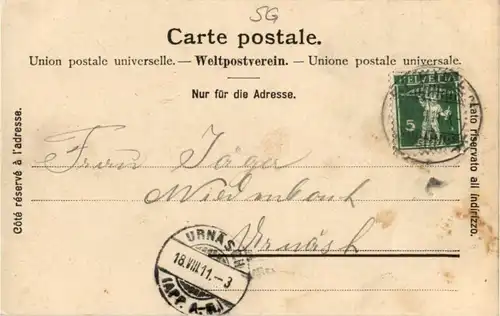 SG
Carte postale.
Union postale universelle. — Weltpostverein. — Unione postale universale.
Nur für die Adresse.
Côté réservé à l'adresse.
Lato riservato all' indirizzo.
HELVETIA
5
Frau Jäger
Urnäsch
URNÄSCH
18.VIII.11.-3
(APP. A.-RH.)